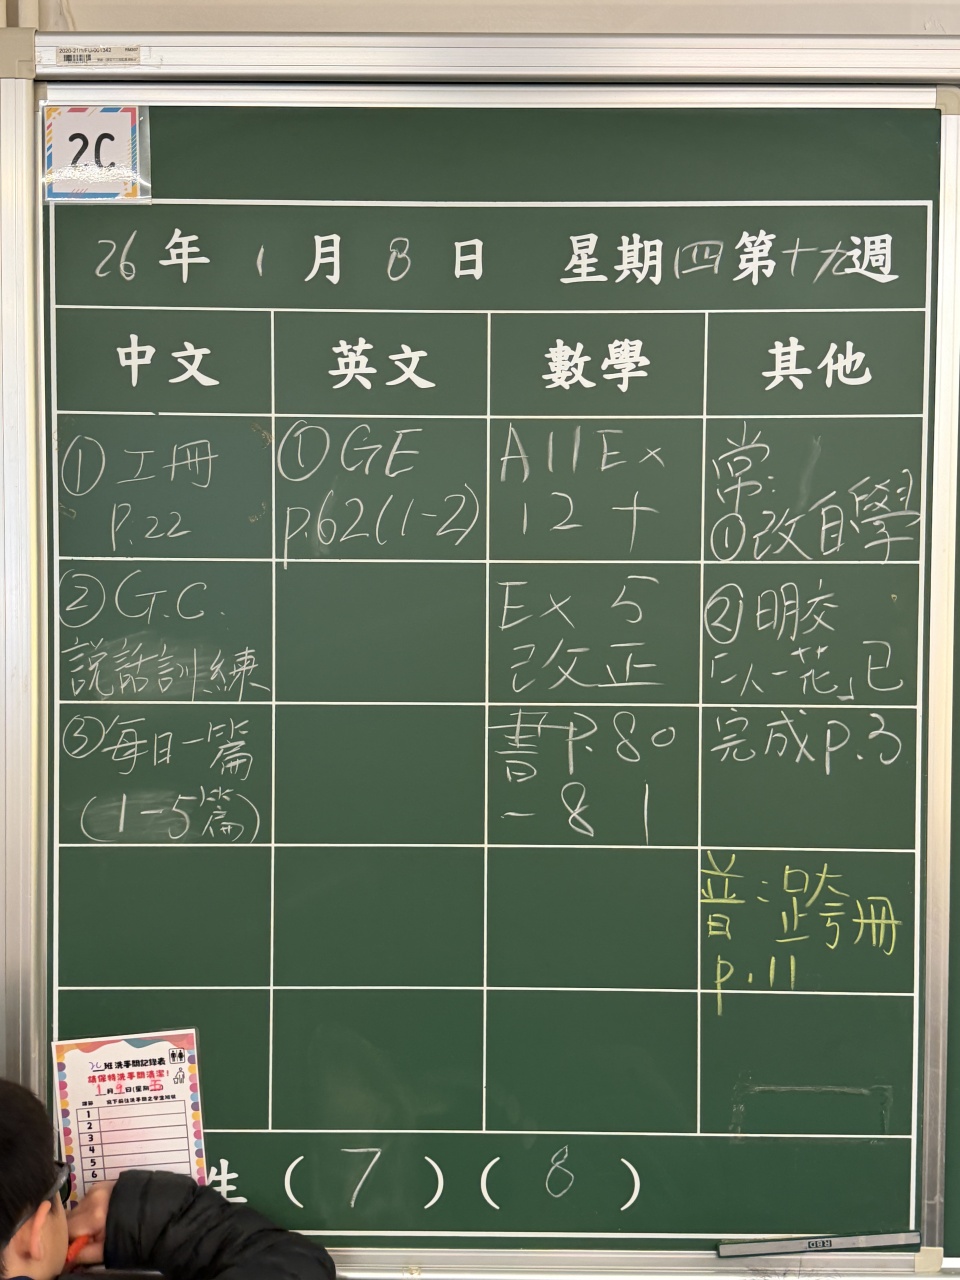 2020-21/1/FU-001342
2C
26年1月8日 星期四第十九週
中文
英文
數學
其他
①工冊
P.22
②G.C.
說話訓練
③每日一篇
(1-5篇)
①GE
p.62(1-2)
A11Ex
12十
Ex 5
改正
書P.80
-81
常:
①改自學
②明交
「以一花」已
完成p.3
普:跨冊
p.11
2C班洗手間記錄表
請保持洗手間清潔!
1月9日(星期五)
1
2
3
4
5
6
生(7)(8)